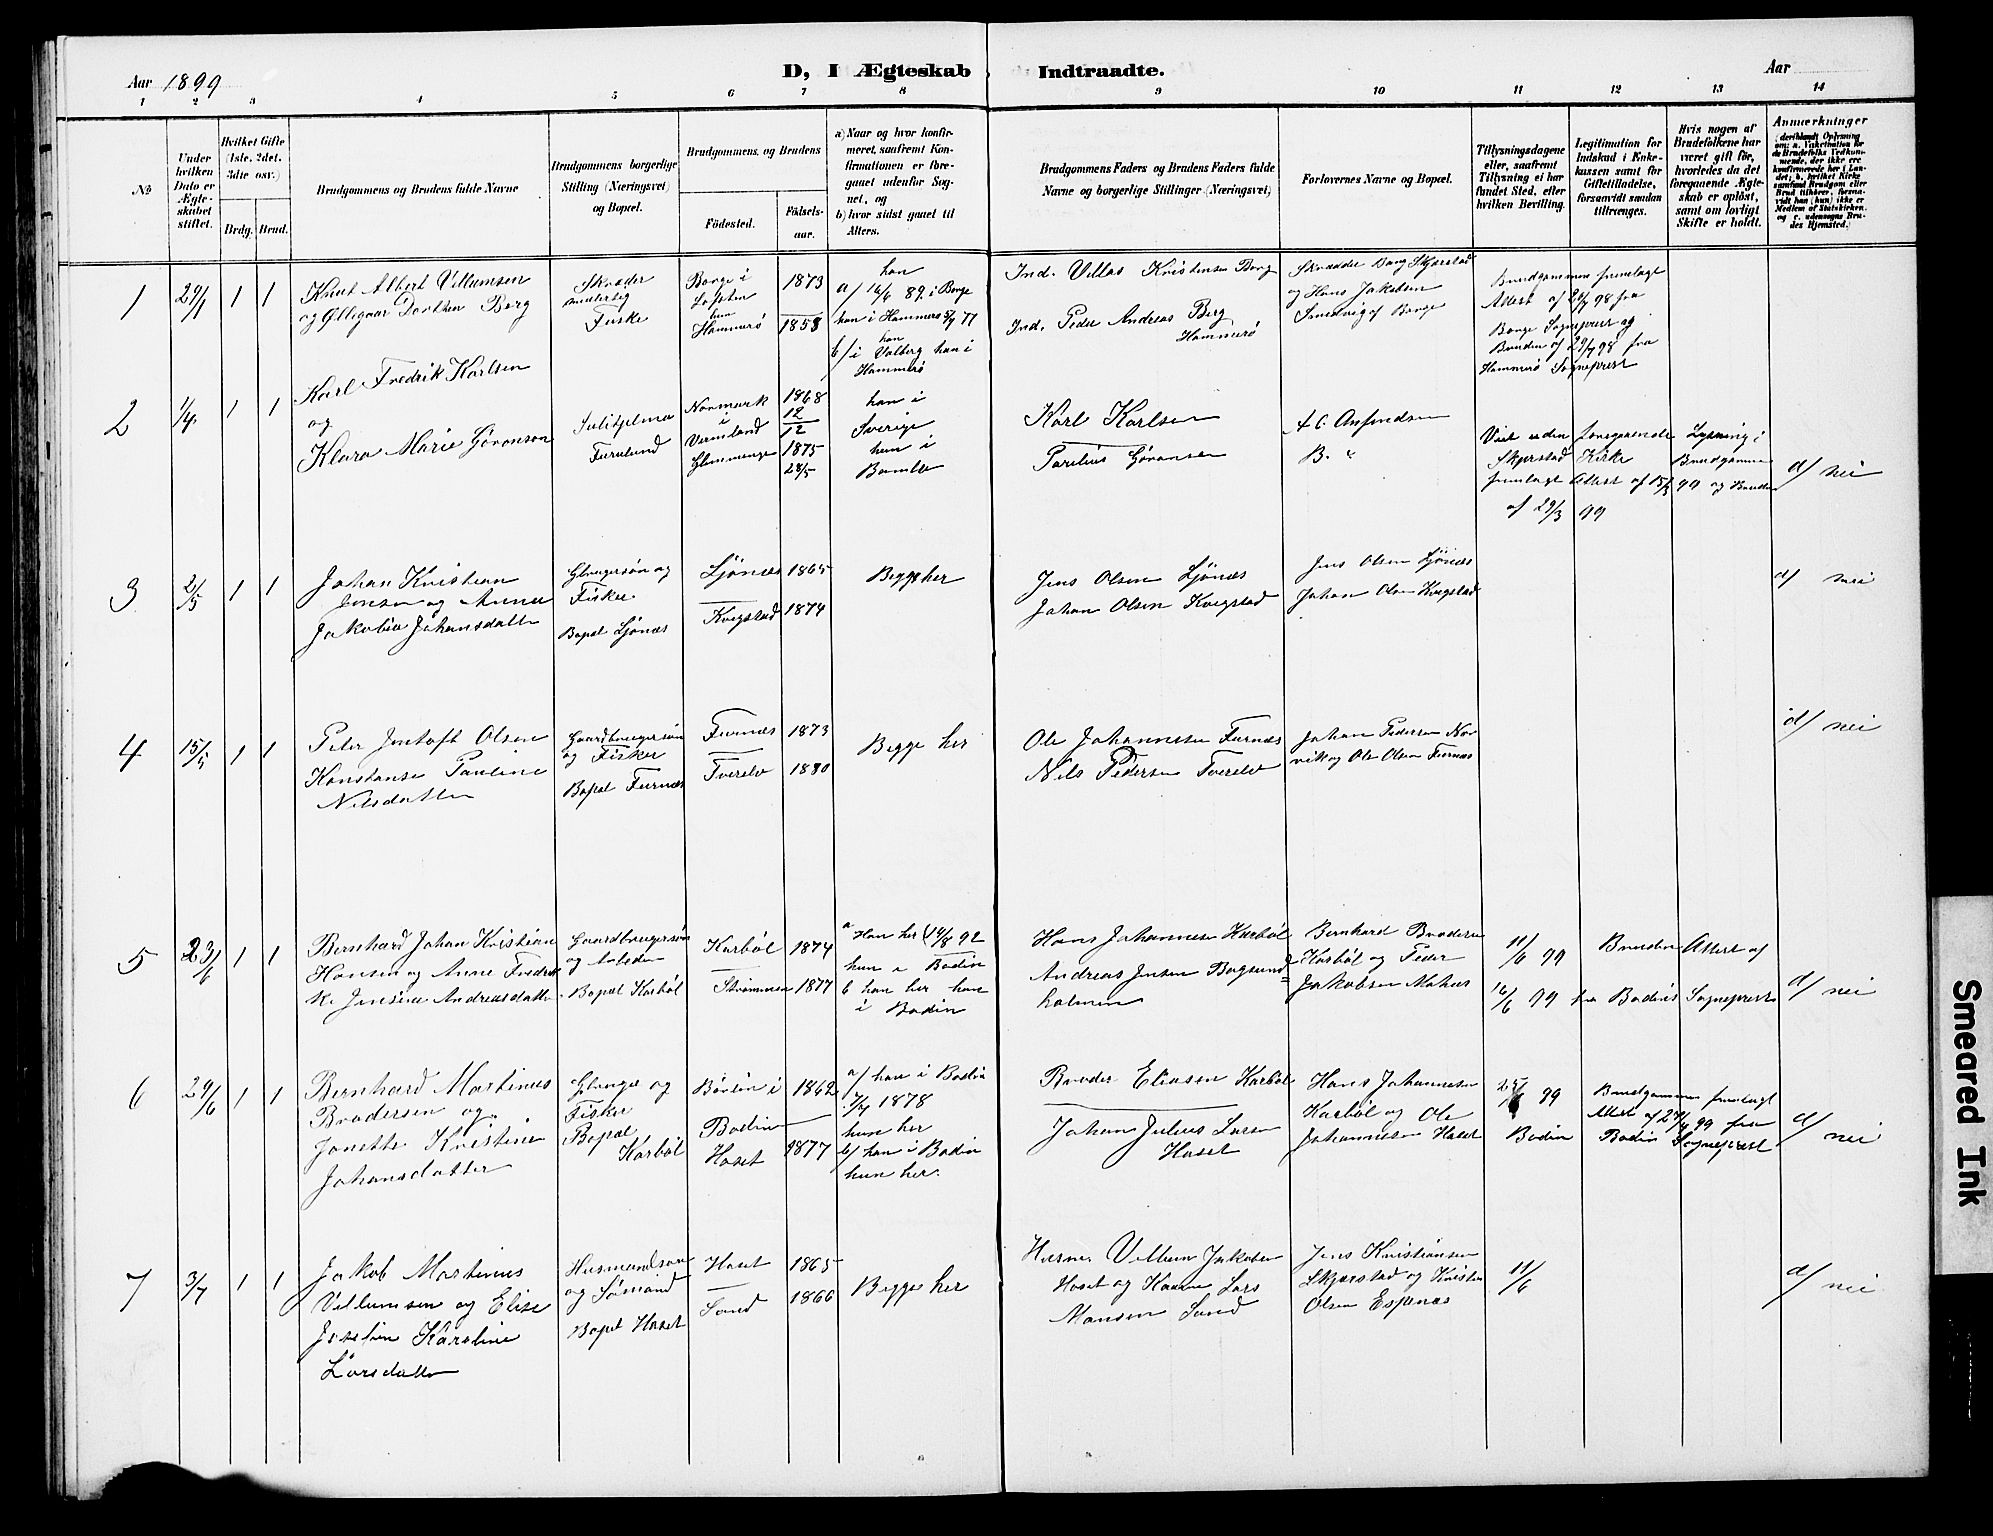 D, I Ægteskab Indtraadte.
Aar 1899
Aar
1 2 3 4 5 6 7 8 9 10 11 12 13 14
No
Under hvilken Dato er Ægteskabet stiftet.
Hvilket Gifte (1ste. 2det. 3die osv.)
Brdg. Brud.
Brudgommens og Brudens fulde Navne
Brudgommens borgerlige Stilling (Næringsvei) og Bopæl.
Brudgommens og Brudens
Fødested.
Fødselsaar.
a) Naar og hvor konfirmeret, saafremt Konfirmationen er foregaaet udenfor Sognet, og
b) hvor sidst gaaet til Alters.
Brudgommens Faders og Brudens Faders fulde Navne og borgerlige Stillinger (Næringsvei)
Forlovernes Navne og Bopæl.
Tillysningsdagene eller, saafremt Tillysning ei har fundet Sted, efter hvilken Bevilling.
Legitimation for Indskud i Enkekassen samt for Giftetilladelse, forsaavidt saadan tiltrænges.
Hvis nogen af Brudefolkene har været gift før, hvorledes da det foregaaende Ægteskab er opløst, samt om lovligt Skifte er holdt.
Anmærkninger
1 29/1 1 1
Knut Albert Villumsen
og
Dorthea Berg
Skræder
Fiske
Borge i
Lofoten
hun
Hammerø
1873
1858
han
a/ 16/6 89 i Borge
hun i Hammerø 8/7 77
han
b/ i Valberg hun i
Hammerø
Ind. Villas Kristensen Borg
Ind. Peder Andreas Berg
Hammerø
Skrædder Berg Skjerstad
og Hans Jakobsen
af Borge
Brudgommen fremlagt
Attest af 98 fra
Borge Sogneprest og
Bruden af 98 fra
Hammerø Sogneprest
2 1/4 1 1
Karl Fredrik Karlsen
og
Klara Marie Gøranson
Sulitjelma
Furulund
Normark
i
Vermland
Glemmenge
1868
12
12
1875
28/5
han i
Sverige
hun i
Bamble
Karl Karlsen
Gøransen
A C Anfindsen
B. "
Viet uden foregaaende Lysning i
Skjerstad Kirke Brudgommen
fremlagt Attest af 15/3 99 og Bruden
af 29/3 99
d/ nei
3 2/5 1 1
Johan Kristian
Jensen og Anna
Jakobia Johansdatter
Gbrugersøn og
Fisker
Bopæl Ljønæs
Ljønæs 1865
Kvegstad 1874
Begge her
Jens Olsen Ljønæs
Johan Olsen Kvegstad
Jens Olsen Ljønæs
Johan Olsen Kvegstad
d/ nei
4 15/5 1 1
Peter Jentoft Olsen
Konstanse Pauline
Nilsdatter
Gaardbrugersøn
og Fisker
Bopæl Furnæs
Furnæs 1873
Tverelv 1880
Begge her
Ole Johannesen Furnæs
Nils Pedersen Tverelv
Johan Pedersen Nor
vik og Ole Olsen Furnæs
d/ nei
5 23/6 1 1
Bernhard Johan Kristian
Hansen og Anne Fredrik
ke Jensine Andreasdatter
Gaardbrugersøn
og Arbeider
Bopæl Karbøl
Karbøl 1874
Strømmen 1877
a Han her (14/8 92
hun i Bodin
b han her hun
i Bodin
Hans Johannesen Karbøl
Andreas Jensen Bogsund=
holmen
Bernhard Brodersen
Karbøl og Peder
Jakobsen
11/6 99
16/6 99
Bruden Attest af
fra Bodins Sogneprest
d/ nei
6 29/6 1 1
Bernhard Martinus
Brodersen og
Janette Kristine
Johansdatter
Gbruger og
Fisker
Bopæl
Karbøl
i 1862
Bodin
Hoset 1877
a/ han i Bodin
7/7 1878
hun her
b/ han i Bodin
hun her.
Broder Eliasen Karbøl
Johan Julius Larsen
Hoset
Hans Johannesen
Karbøl og Ole
Johannesen Hoset
99
Bodin
Brudgommen fremlagt
Attest af 27/6 99 fra
Bodin Sogneprest
d/ nei
7 3/7 1 1
Jakob Martinus
Villumsen og Elise
Karoline
Larsdatter
Husmandssøn
og Sømand
Bopæl Hoset
Hoset 1865
Sand 1866
Begge her
Husm. Villum Jakobsen
Hoset og Lars
Monsen Sand
Jens Kristiansen
Skjerstad og Kristen
Olsen Espenæs
11/6
d/ nei
Smeared Ink